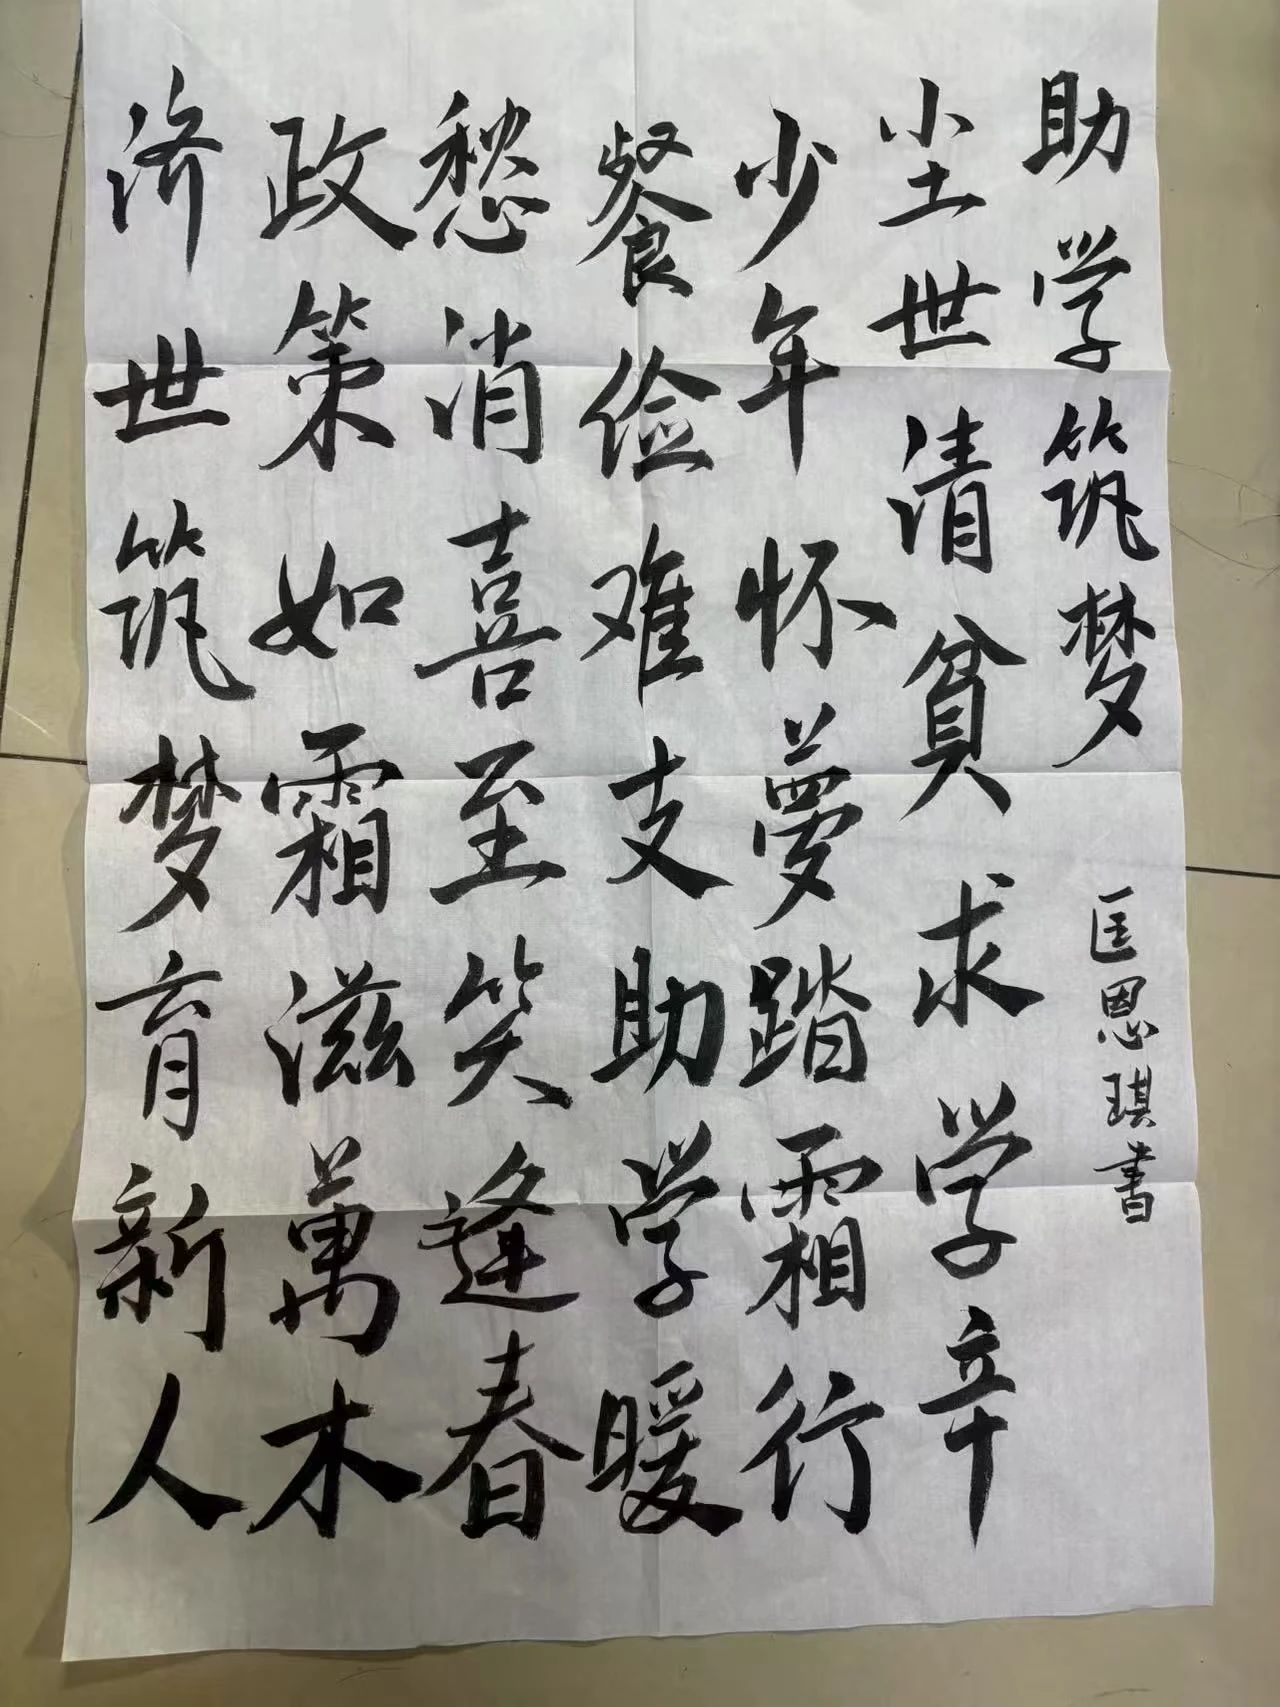 助学筑梦
匡恩琪書
尘世清貧求学辛
少年怀夢踏霜行
餐俭难支助学暖
愁消喜至笑逢春
政策如霜滋萬木
济世筑梦育新人